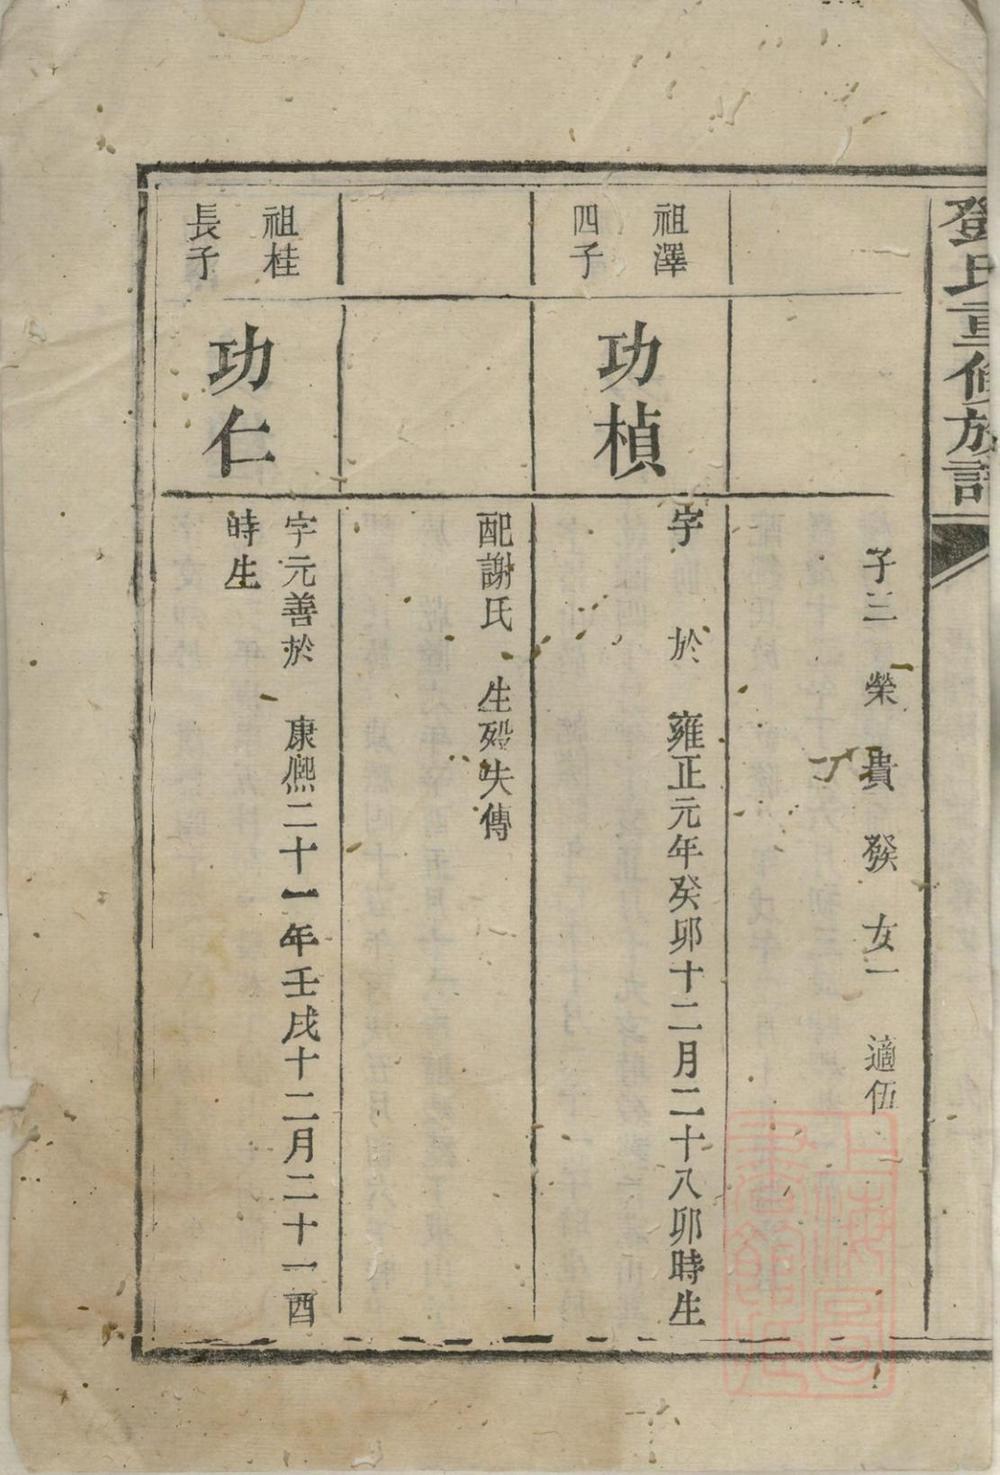 鄧氏重修族譜
子三 榮 貴 發 女一 適伍
祖澤
四子
功楨
字 於 雍正元年癸卯十二月二十八卯時生
配謝氏 生殁失傳
祖桂
長子
功仁
字元善於 康熙二十一年壬戌十二月二十一酉
時生
上海圖
書館藏